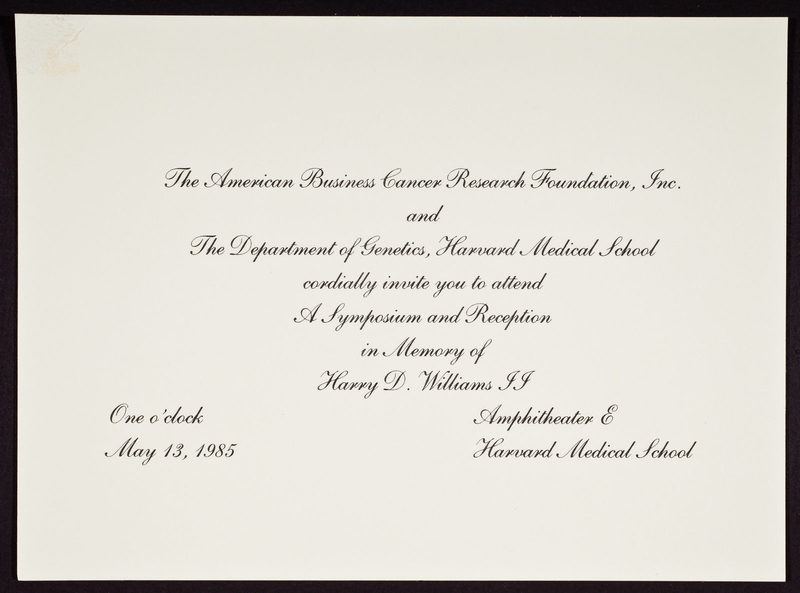 The American Business Cancer Research Foundation, Inc.
and
The Department of Genetics, Harvard Medical School
cordially invite you to attend
A Symposium and Reception
in Memory of
Harry D. Williams II
One o'clock
May 13, 1985
Amphitheater E
Harvard Medical School